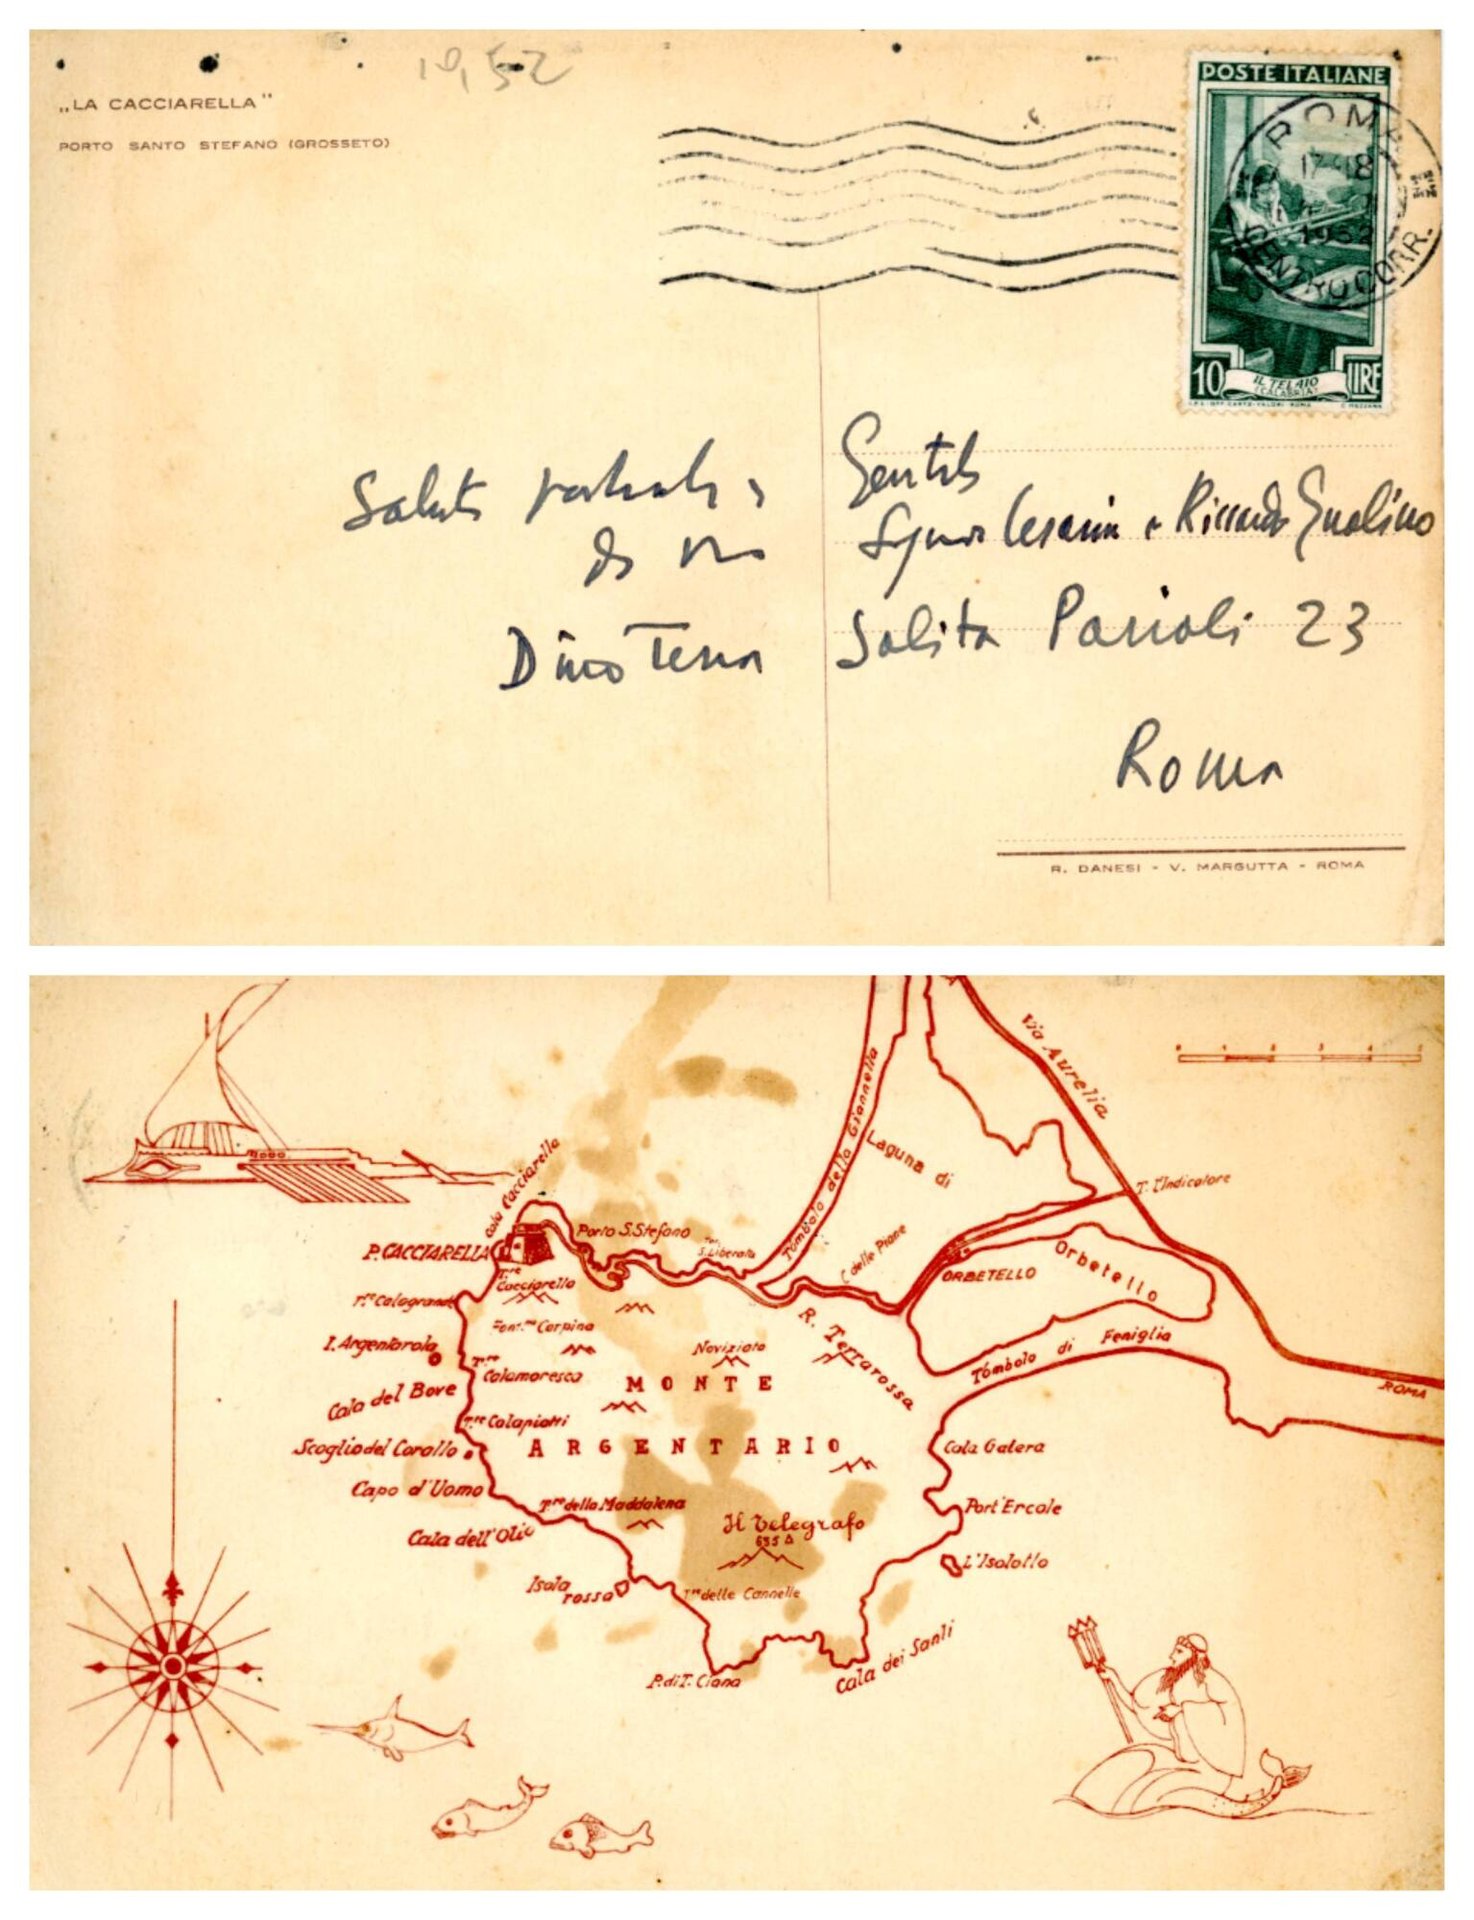 „LA CACCIARELLA"
PORTO SANTO STEFANO (GROSSETO)
1952
POSTE ITALIANE
ROMA
17-18
1952
CENTRO CORR.
10 LIRE
IL TELAIO
(CALABRIA)
I.P.S. OFF. CARTE-VALORI - ROMA
Saluti
Dino Terra
Gentili
Signori Cesarina e Riccardo Gualino
Salita Parioli 23
Roma
R. DANESI - V. MARGUTTA - ROMA
0 1 2 3 4 5
Via Aurelia
Tombolo della Giannella
Laguna di
Orbetello
T. l'Indicatore
Cala Cacciarella
P. CACCIARELLA
Porto S. Stefano
S. Liberata
C. delle Piane
ORBETELLO
T.re Cacciarella
T.re Calagrande
Font.na Carpina
R. Terrarossa
Tómbolo di Feniglia
I. Argentarola
T.re Calamoresca
Noviziato
ROMA
Cala del Bove
MONTE
ARGENTARIO
T.re Calapiatti
Scoglio del Corallo
Cala Galera
Capo d'Uomo
T.re della Maddalena
Port'Ercole
Cala dell'Olio
Il Telegrafo
635
L'Isolotto
Isola
rossa
T.re delle Cannelle
P. di T. Ciana
Cala dei Santi